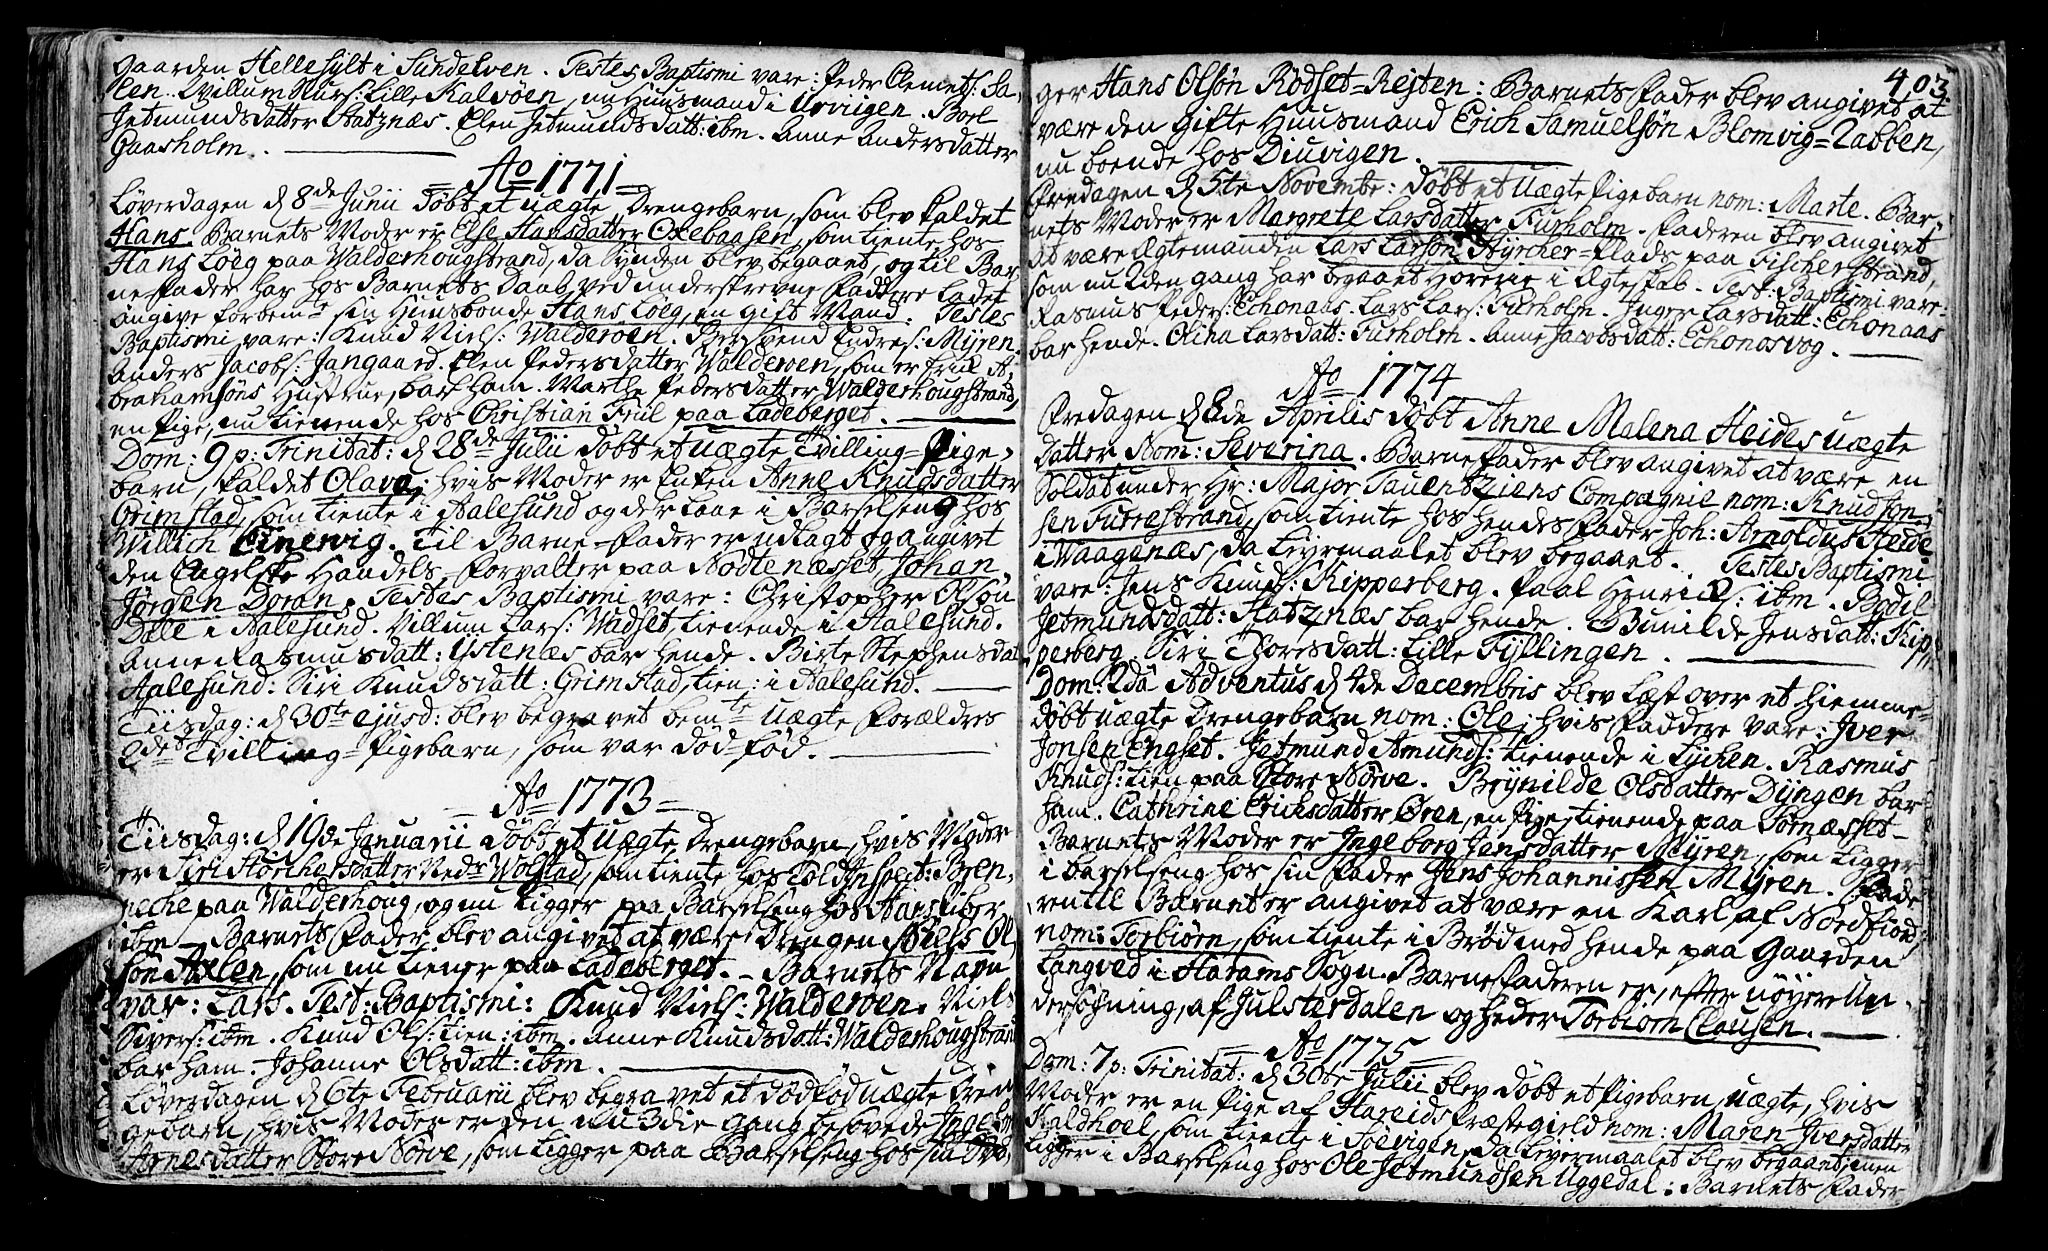 gaarden Hellesylt i Sundelven. Testes Baptismi vare: Peder Clemets: Sa-
len. Willum Lars: Lille Kalvøen, nu Huusmand i Urvigen. Boel
Jetmundsdatter Statznæs. Elen Jetmundsdatt: ibm. Anne Andersdatter
Gaasholm.
Ao 1771
Løverdagen d 8de Junii døbt et uægte Drengebarn, som blev kaldet
Hans. Barnets Moder er Else Hansdatter Oxebaasen, som tiente hos
Hans Løeg paa Walderhougstrand, da Synden blev begaaet, og til Bar-
ne-Fader har hos Barnets Daab ved underskrevne Faddere ladet
angive forbemte sin Huusbonde Hans Løeg, en gift Mand. Testes
Baptismi vare: Knud Niels: Walderøen. Svend Endres: Myren.
Anders Jacobs: Jangaard. Elen Pedersdatter Walderøen, som er Friil A-
brahamsøns Hustrue, bar ham. Marthe Pedersdatter Walderhougstrand,
en Pige, nu tienende hos Christian Friil paa Ladeberget.
Dom: 9 p: Trinitat: d 28de Julii døbt et uægte Tvilling-Pige-
barn, kaldet Olava, hvis Moder er Enken Anne Knudsdatter
Grimstad, som tiente i Aalesund og der laae i Barselseng hos
Willich Einervig. Til Barne-Fader er udlagt og angivet
den Engelske Handels-Forvalter paa Nødtenæsset Johan
Jørgen Doran. Testes Baptismi vare: Christopher Olsøn
Dale i Aalesund. Villum Lars: Wadset, tienende i Aalesund.
Anne Rasmusdatt: Ystenæs bar hende. Birte Stephensdat
Aalesund: Siri Knudsdatt: Grimstad, tien: i Aalesund.
Tiisdag: d 30te ejusd: blev begravet bemte uægte Forældres
2det Tvilling-Pigebarn, som var død-fød.
Ao 1773
Tiisdag: d 19de Januarii døbt et uægte Drengebarn, hvis Moder
er Siri Størchersdatter Nedr Wolstad, som tiente hos Toldinspect: Bren-
neche paa Walderhoug, og nu ligger paa Barselseng hos Hans Iber
ibm. Barnets Fader blev angivet at være Drengen Niels Ol-
søn Axlen, som nu tiener paa Ladeberget. Barnets Navn
var: Lars. Test: Baptismi: Knud Niels: Walderøen. Niels
Sivers: ibm. Knud Ols: tien: ibm. Anne Knudsdatt: Walderhougstrand
bar ham. Johanne Olsdatt: ibm.
Løverdagen d 6te Februarii blev begravet et dødfød uægte Dren-
gebarn, hvis Moder er den nu 3die gang besovede Ingebor
Arnesdatter Store Nørve, som ligger paa Barselseng hos sin
403
ger Hans Olsøn Rødset-Rejten: Barnets Fader blev angivet at
være den gifte Huusmand Erich Samuelsøn Blomvig-Labben,
nu boende hos Diuvigen.
Fredagen d 5te Novembr: døbt et uægte Pigebarn nom: Marte. Bar-
nets Moder er Margrete Larsdatter Furholm. Faderen blev angivet
at være Ægtemanden Lars Larsøn Hyrcher-Plads paa Fischerstrand,
som nu 2den gang har begaaet Horerie i Ægteskab. Test: Baptismi vare:
Rasmus Peders: Echonaas. Lars Lars: Furholm. Inger Larsdatt: Echonaas
bar hende. Olina Larsdatt: Furholm. Anne Jacobsdatt: Echonosvog.
Ao 1774
Fredagen d 8de Aprilis døbt Anne Malena Heides uægte
Datter Nom: Severina. Barnefader blev angivet at være en
Soldat under Hr: Major Tauentziens Compagnie nom: Knud Jon-
sen Furrestrand, som tiente hos hendes Fader Joh: Arnoldus Heide
i Waagenæs, da Leyrmaalet blev begaaet. Testes Baptismi
vare: Jens Knuds: Kipperberg. Paal Henrichs: ibm. Bodil
Jetmundsdatt: Statznæs bar hende. Bunilde Jensdatt: Kip-
perberg. Siri Thoresdatt: Lille Tyllingen.
Dom: 2da Adventus d 4de Decembris blev læst over et hiemme-
døbt uægte Drengebarn nom: Ole, hvis Faddere vare: Iver
Jonsen Engset. Jetmund Amunds: tienende i Lychen. Rasmus
Knuds: tien paa Store Nørve. Brynilde Olsdatter Dyngen bar
ham. Cathrine Erichsdatter Øren, en Pige, tienende paa Sørnæsset
Barnets Moder er Ingeborg Jensdatter Myren, som ligger
i Barselseng hos sin Fader Jens Johannissen Myren. Fade-
ren til Barnet er angivet at være en Karl af Nordfiord
nom: Torbiørn, som tiente i Brød med hende paa Gaarden
Langved i Harams Sogn. Barnefaderen er, efter nøyere Un-
dersøgning, af Julsterdalen og heder Torbiørn Clausen.
Ao 1775
Dom: 7 p: Trinitat: d 30te Julii blev døbt et Pigebarn, uægte, hvis
Moder er en Pige af Hareids Præstegield nom: Maren Iversdatter
Kaldhoel, som tiente i Søevigen, da Leiermaalet blev begaaet, men
ligger i Barselseng hos Ole Jetmundsen Uggedal: Barnets Fader